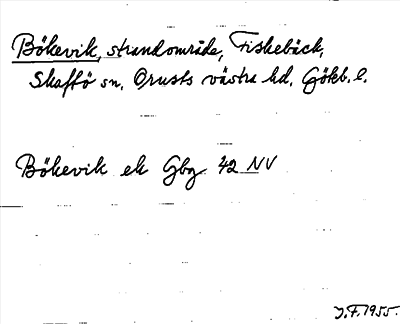 Bökevik, strandområde, Fiskebäck,
Skaftö sn, Orusts västra hd, Götb. l.
Bökevik ek Gbg 42 NV
J.F. 1955.